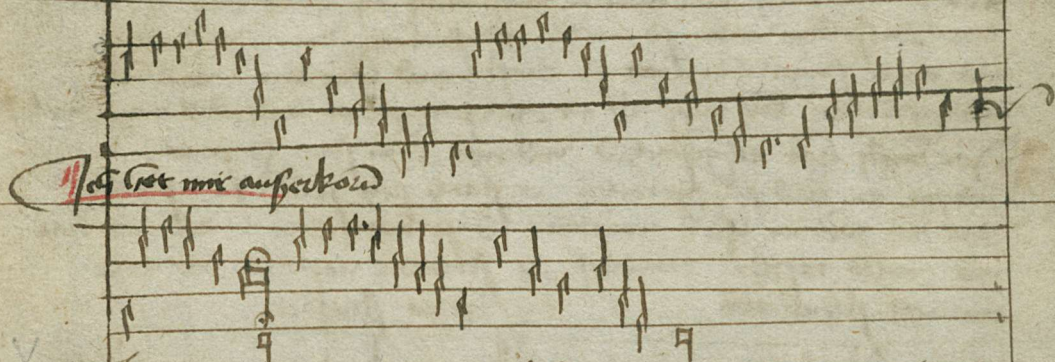 Ich het mir außerkorn